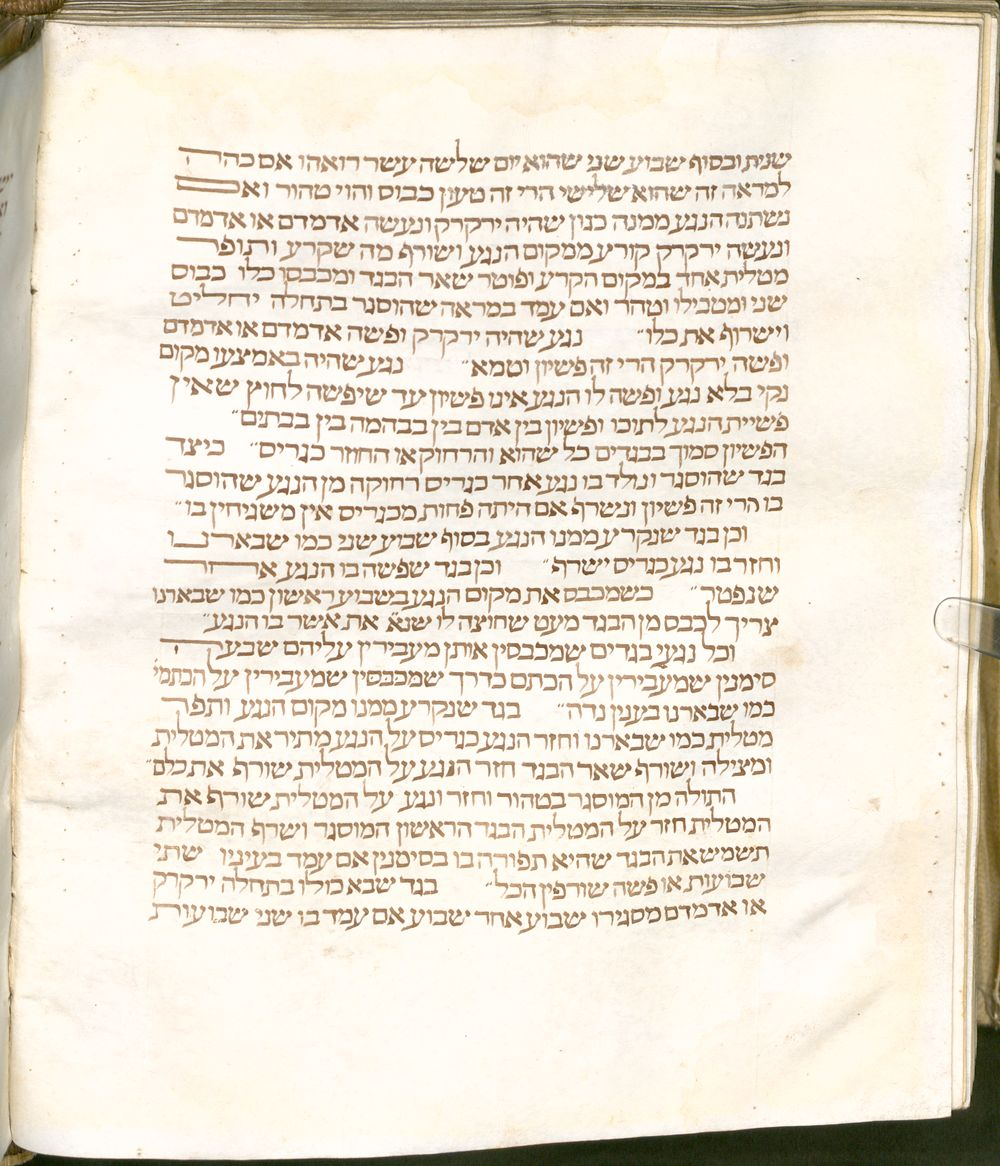 שנית ובסוף שבוע שני שהוא יום שלשה עשר רואהו אם כהה
למראה זה שהוא שלישי הרי זה טעון כבוס והוי טהור ואם
נשתנה הנגע ממנה כגון שהיה ירקרק ונעשה אדמדם או אדמדם
ונעשה ירקרק קורע ממקום הנגע ושורף מה שקרע ותופר
מטלית אחד במקום הקרע ופוטר שאר הבגד ומכבסו כלו כבוס
שני ומטבילו וטהר ואם עמד במראה שהוסגר בתחלה יחליט
וישרוף את כלו״ נגע שהיה ירקרק ופשה אדמדם או אדמדם
ופשה ירקרק הרי זה פשיון וטמא״ נגע שהיה באמצעו מקום
נקי בלא נגע ופשה לו הנגע אינו פשיון עד שיפשה לחוץ שאין
פשיית הנגע לתוכו ופשיון בין אדם בין בבהמה בין בבתים״
הפשיון סמוך בבגדים כל שהוא והרחוק או החוזר כגריס״ כיצד
בגד שהוסגר ונולד בו נגע אחר כגריס רחוקה מן הנגע שהוסגר
בו הרי זה פשיון ונשרף אם היתה פחות מכגריס אין משגיחין בו״
וכן בגד שנקרע ממנו הנגע בסוף שבוע שני כמו שבארנו
וחזר בו נגע כגריס ישרף״ וכן בגד שפשה בו הנגע אחר
שנפטר״ כשמכבס את מקום הנגע בשבוע ראשון כמו שבארנו
צריך לכבס מן הבגד מעט שחוצה לו שנא את אשר בו הנגע״
וכל נגעי בגדים שמכבסין אותן מעבירין עליהם שבעה
סימנין שמעבירין על הכתם כדרך שמכבסין שמעבירין על הכתמי
כמו שבארנו בענין נדה״ בגד שנקרע ממנו מקום הנגע ותפר
מטלית כמו שבארנו וחזר הנגע כגריס על הנגע מתיר את המטלית
ומצילה ושורף שאר הבגד חזר הנגע על המטלית שורף את כלם״
התולה מן המוסגר בטהור וחזר ונגע על המטלית שורף את
המטלית חזר על המטלית הבגד הראשון המוסגר ושרף המטלית
תשמש את הבגד שהיא תפורה בו בסימנין אם עמד בעיניו שתי
שבועות או פשה שורפין הכל״ בגד שבא כולו בתחלה ירקרק
או אדמדם מסגירו שבוע אחד שבוע אם עמד בו שני שבועות